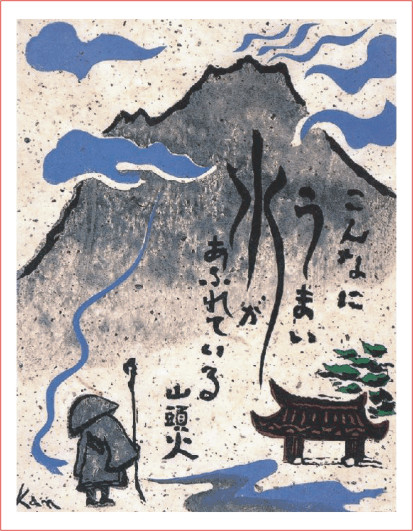 こんなに
うまい
水が
あふれている
山頭火
Kan